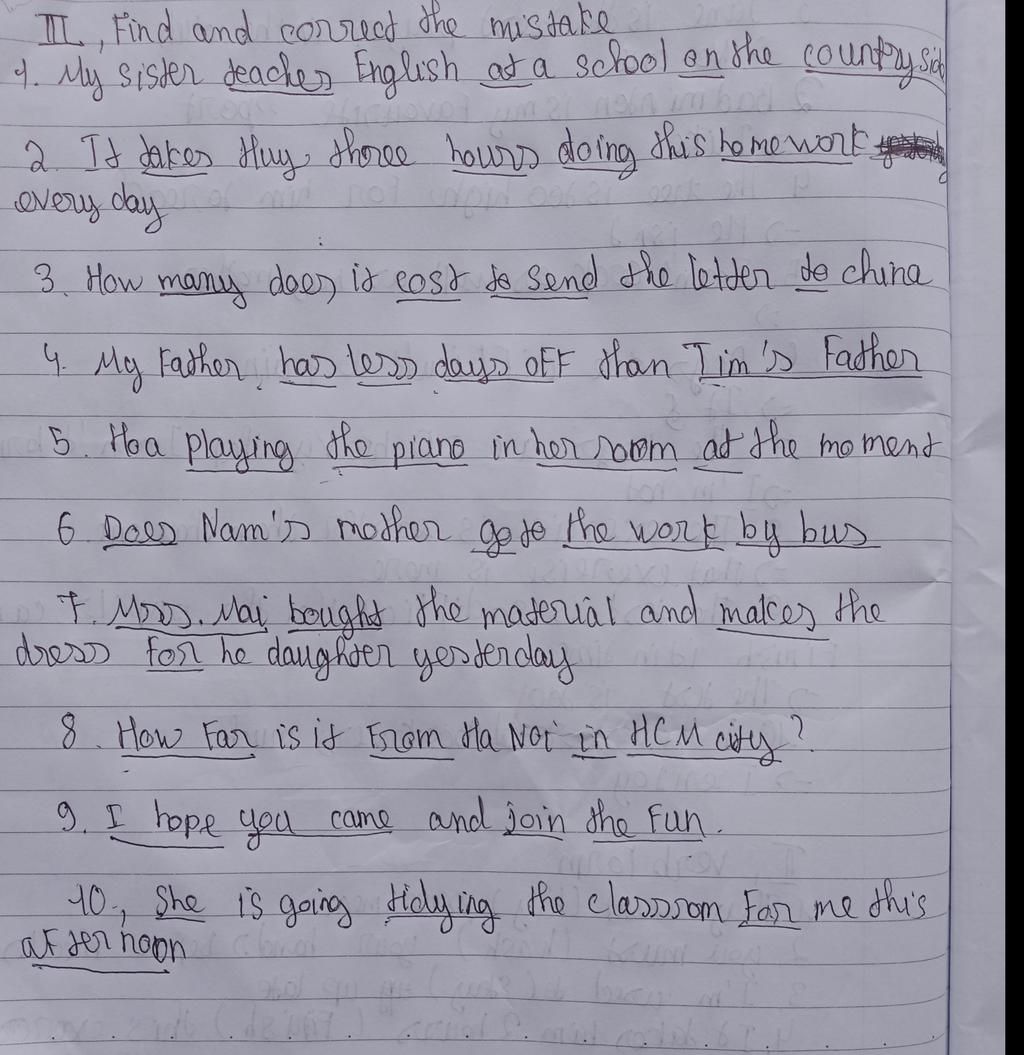 III, Find and correct the mistake
1. My sister teaches English at a school on the country side
2. It takes Huy, three hours doing this homework
every day
3. How many does it cost to send the letter to china
4. My Father has less days off than Tim's Father
5. Hoa playing the piano in her room at the moment
6 Does Nam's mother go to the work by bus
7. Mrs. Mai bought the material and makes the
dress for he daughter yesterday
8. How Far is it From Ha Noi in HCM city?
9. I hope you came and join the Fun.
10., She is going tidying the classrom For me this
afternoon